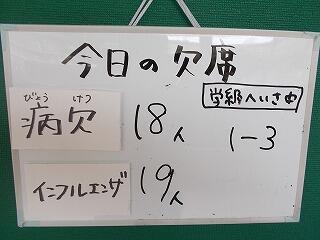 今日の欠席
学級へいさ中
びょう けつ
病欠 18人 1-3
インフルエンザ 19人